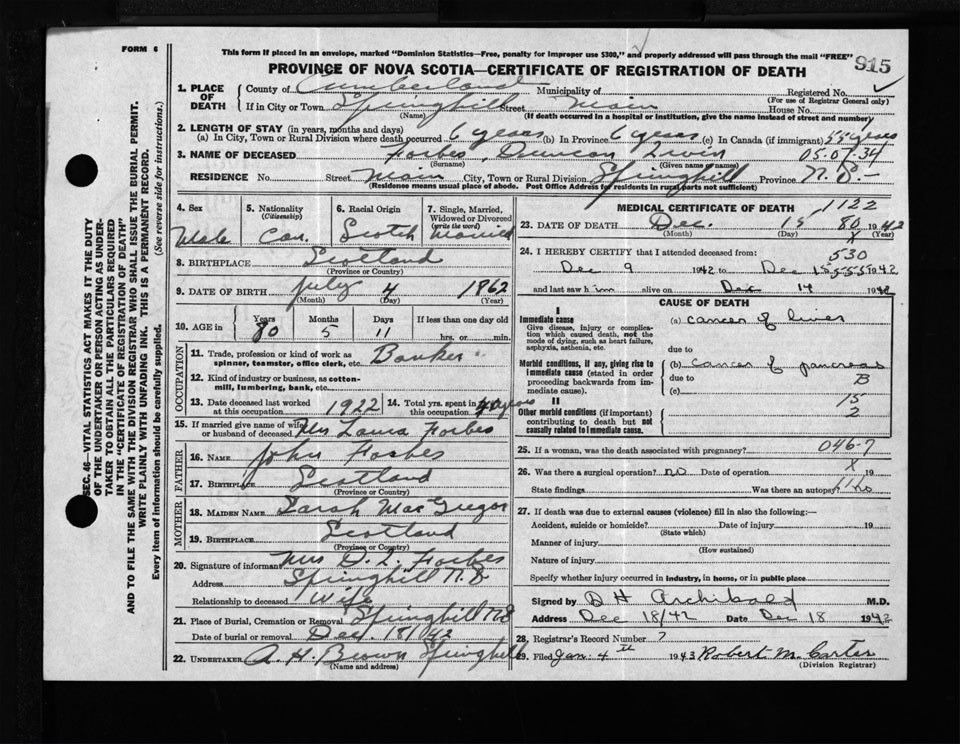 FORM 6
This form if placed in an envelope, marked "Dominion Statistics—Free, penalty for improper use $300," and properly addressed will pass through the mail "FREE"
PROVINCE OF NOVA SCOTIA—CERTIFICATE OF REGISTRATION OF DEATH 915
1. PLACE OF DEATH County of Cumberland Municipality of Registered No.
(For use of Registrar General only)
If in City or Town Springhill Street Main House No.
(Name) (If death occurred in a hospital or institution, give the name instead of street and number)
2. LENGTH OF STAY (in years, months and days)
(a) In City, Town or Rural Division where death occurred 6 years (b) In Province 6 years (c) In Canada (if immigrant) 55 years
3. NAME OF DECEASED Forbes, Duncan 05.07-34
(Surname) (Given name or names)
RESIDENCE No. Street Main City, Town or Rural Division Springhill Province N.S.-
(Residence means usual place of abode. Post Office Address for residents in rural parts not sufficient)
4. Sex 5. Nationality (Citizenship) 6. Racial Origin 7. Single, Married, Widowed or Divorced (write the word)
Male Can. Scotch Married
8. BIRTHPLACE Scotland
(Province or Country)
9. DATE OF BIRTH July 4 1862
(Month) (Day) (Year)
10. AGE in Years Months Days If less than one day old
80 5 11 hrs. or min.
OCCUPATION
11. Trade, profession or kind of work as spinner, teamster, office clerk, etc. Banker
12. Kind of industry or business, as cotton-mill, lumbering, bank, etc.
13. Date deceased last worked at this occupation 1922 14. Total yrs. spent in this occupation 40 years
15. If married give name of wife or husband of deceased Mrs Laura Forbes
FATHER
16. NAME John Forbes
17. BIRTHPLACE Scotland
(Province or Country)
MOTHER
18. MAIDEN NAME Sarah MacGregor
19. BIRTHPLACE Scotland
(Province or Country)
20. Signature of informant Mrs D. L. Forbes
Address Springhill N.S
Relationship to deceased Wife
21. Place of Burial, Cremation or Removal Springhill NS
Date of burial or removal Dec. 18/42
22. UNDERTAKER A. H. Brown Springhill
(Name and address)
MEDICAL CERTIFICATE OF DEATH 1122
23. DATE OF DEATH Dec. 15 80 1942
(Month) (Day) X (Year)
24. I HEREBY CERTIFY that I attended deceased from: 530
Dec 9 1942 to Dec 15 1942
and last saw him alive on Dec 14 1942
CAUSE OF DEATH
I
Immediate cause (a) cancer of liver
Give disease, injury or complication which caused death, not the mode of dying, such as heart failure, asphyxia, asthenia, etc.
due to
Morbid conditions, if any, giving rise to immediate cause (stated in order proceeding backwards from immediate cause).
(b) cancer of pancreas
due to B
(c)
II 15
Other morbid conditions (if important) contributing to death but not causally related to immediate cause. 2
25. If a woman, was the death associated with pregnancy? 046-7
26. Was there a surgical operation? no Date of operation X 19
State findings Was there an autopsy? no
27. If death was due to external causes (violence) fill in also the following:—
Accident, suicide or homicide? Date of injury 19
(State which)
Manner of injury
(How sustained)
Nature of injury
Specify whether injury occurred in industry, in home, or in public place
Signed by D H Archibald M.D.
Address Dec 18/42 Date Dec 18 1942
28. Registrar's Record Number 7
29. Filed Jan. 4th 1943 Robert M. Carter
(Division Registrar)
SEC. 46—VITAL STATISTICS ACT MAKES IT THE DUTY
OF THE UNDERTAKER OR PERSON ACTING AS UNDERTAKER TO OBTAIN ALL THE PARTICULARS REQUIRED
IN THE "CERTIFICATE OF REGISTRATION OF DEATH"
AND TO FILE THE SAME WITH THE DIVISION REGISTRAR WHO SHALL ISSUE THE BURIAL PERMIT.
WRITE PLAINLY WITH UNFADING INK. THIS IS A PERMANENT RECORD.
Every item of information should be carefully supplied. (See reverse side for instructions.)